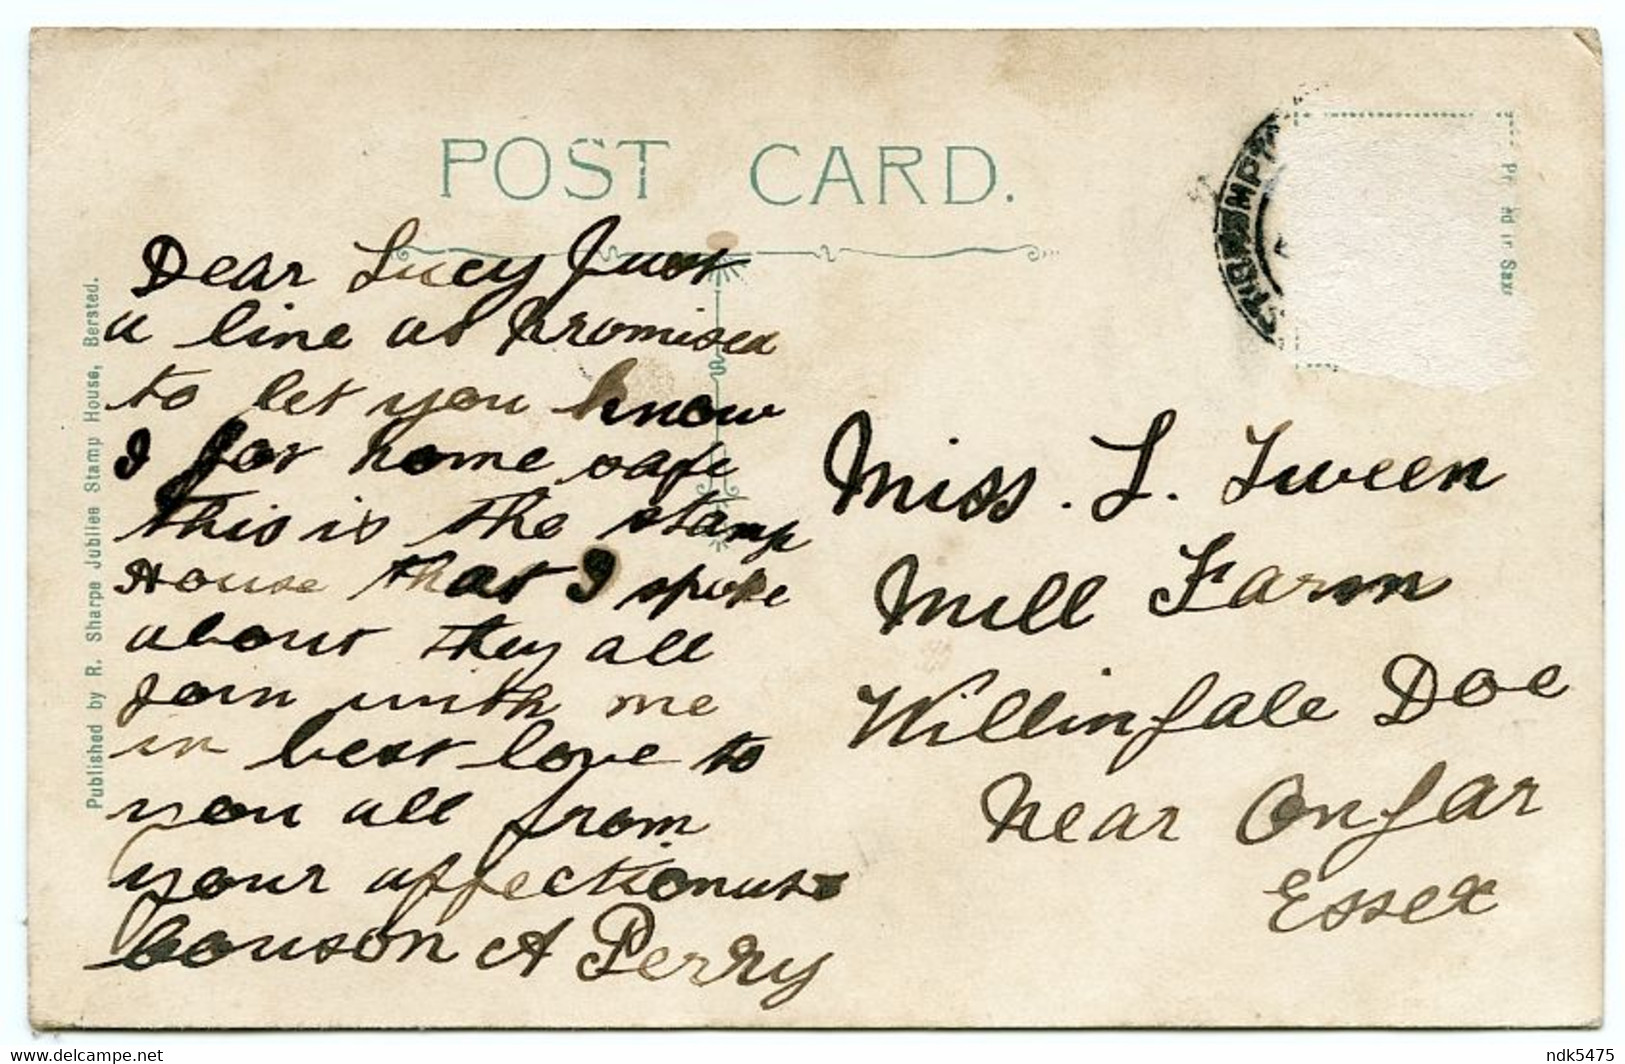 POST CARD.
Dear Lucy Just
a line as promised
to let you know
I got home safe
this is the stamp
House that I spoke
about they all
join with me
in best love to
you all from
your affectionate
couson A Perry
Miss. L. Tween
Mill Farm
Willingale Doe
Near Ongar
Essex
Published by R. Sharpe Jubilee Stamp House, Bersted.
delcampe.net
ndk5475